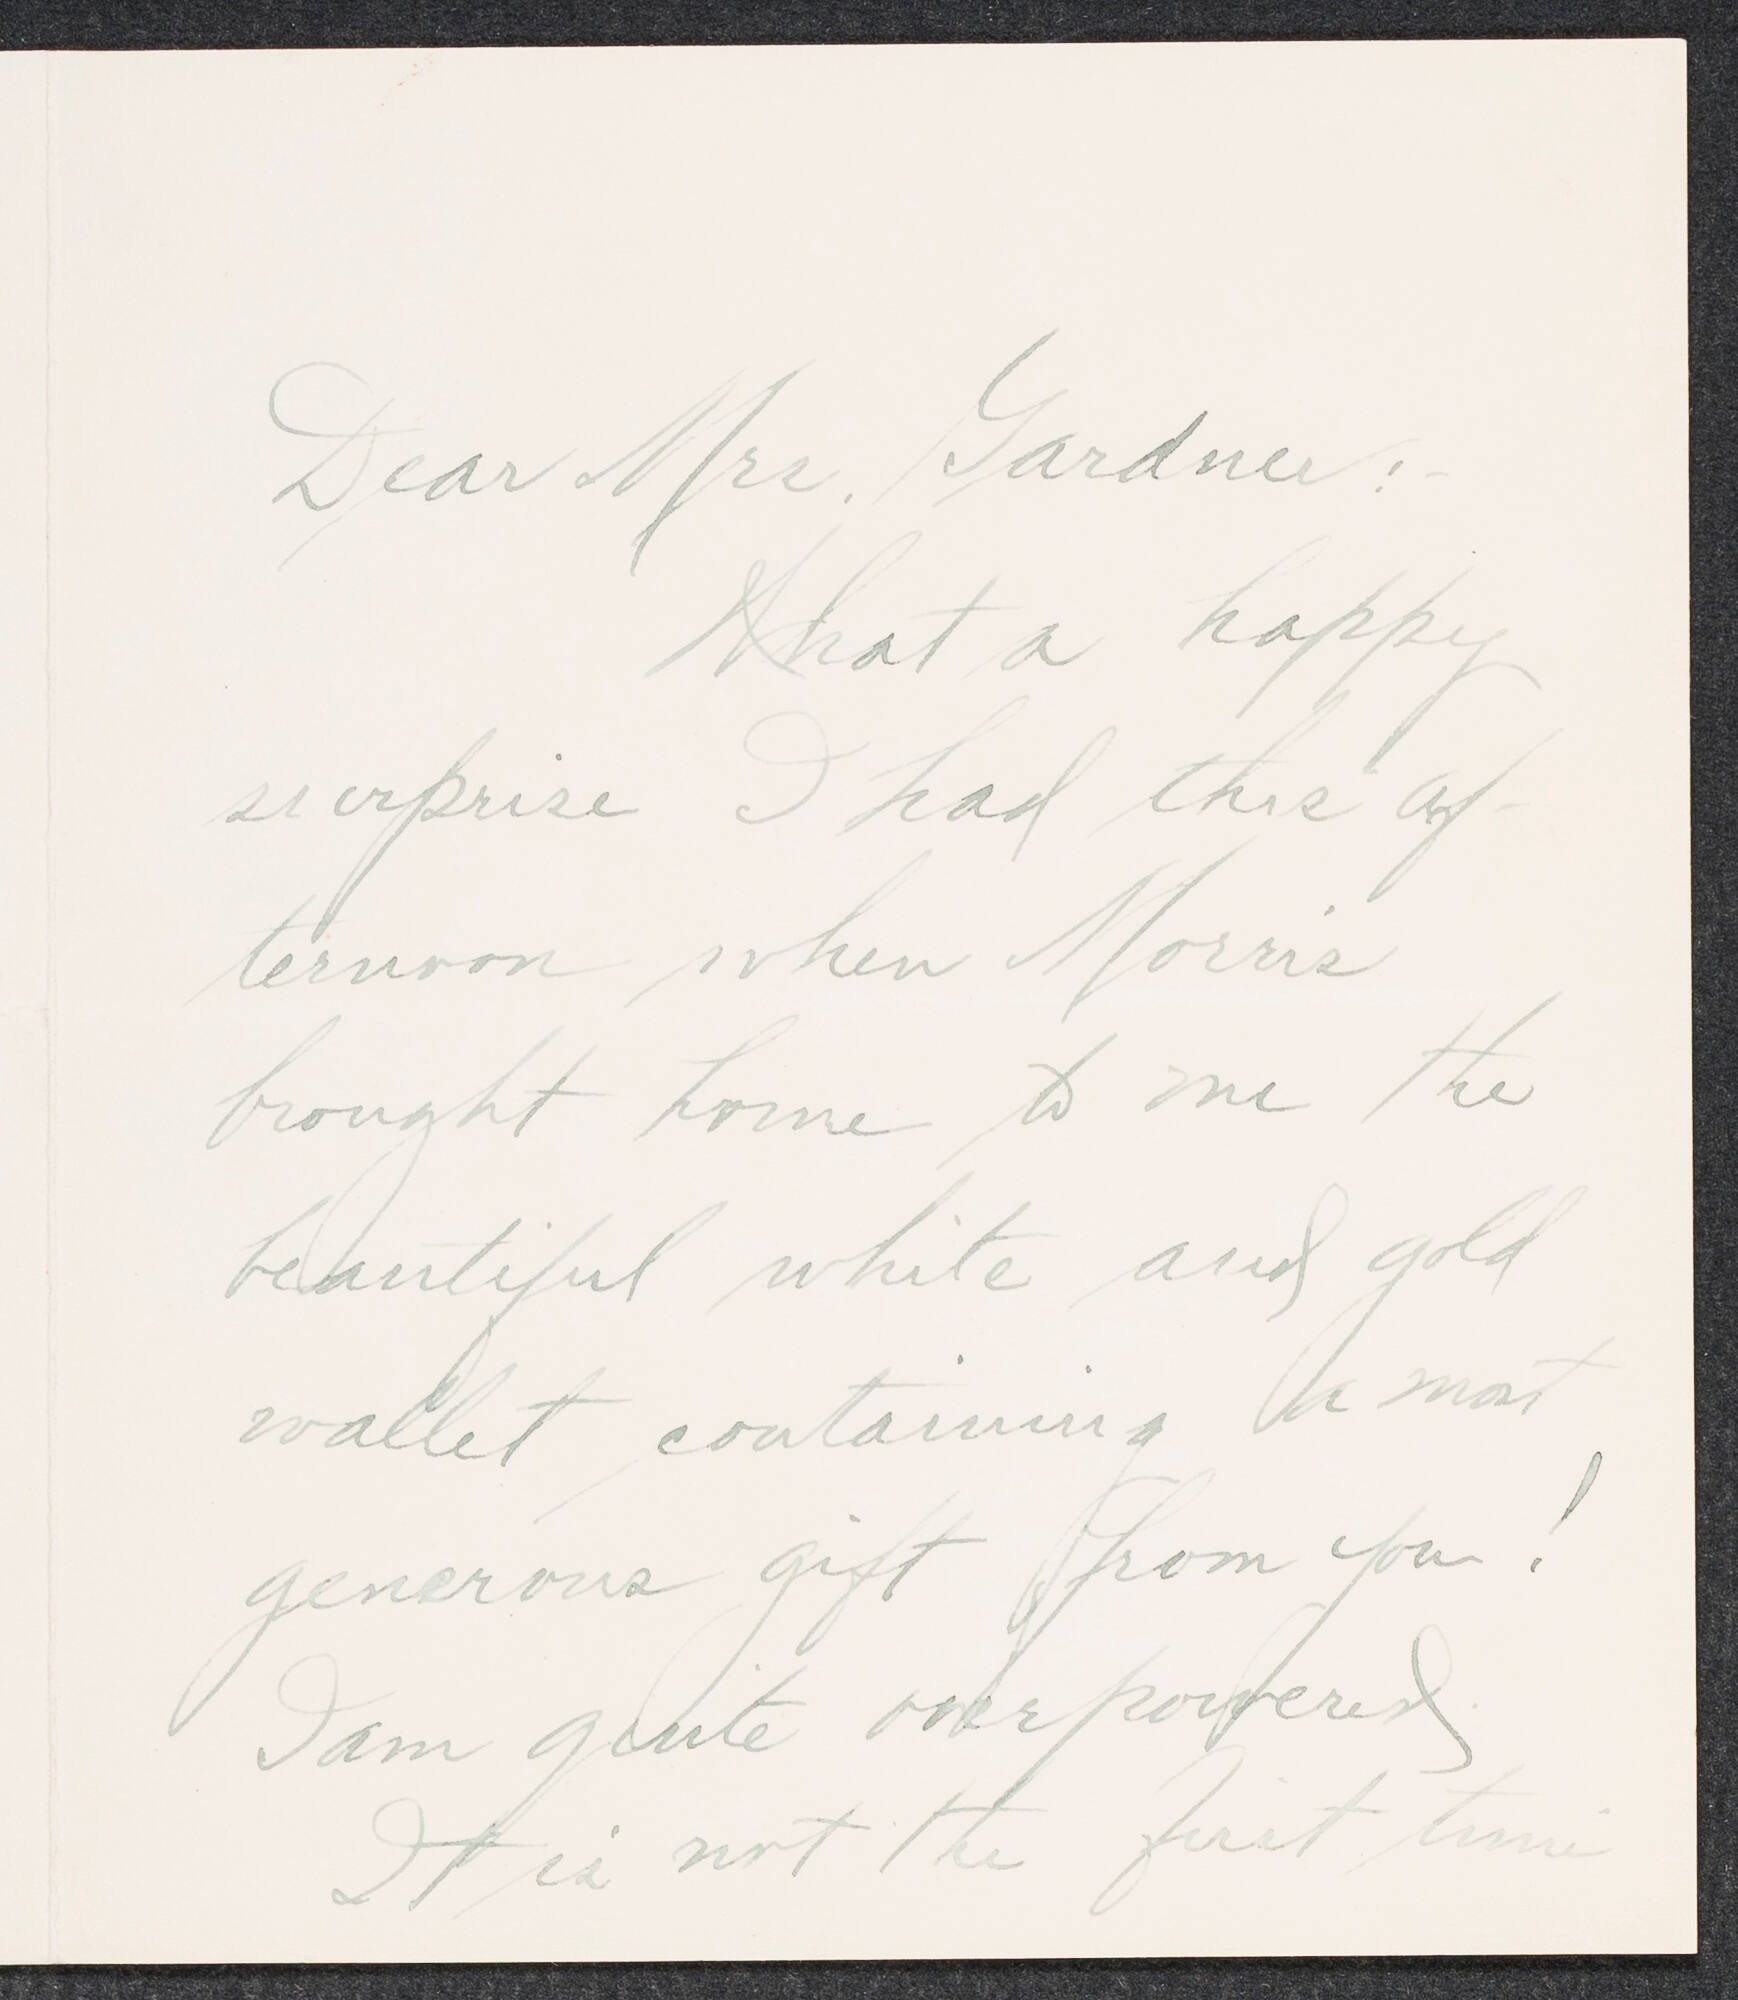 Dear Mrs. Gardner:-
What a happy
surprise I had this af-
ternoon when Morris
brought home to me the
beautiful white and gold
wallet containing a most
generous gift from you!
I am quite overpowered
It is not the first time